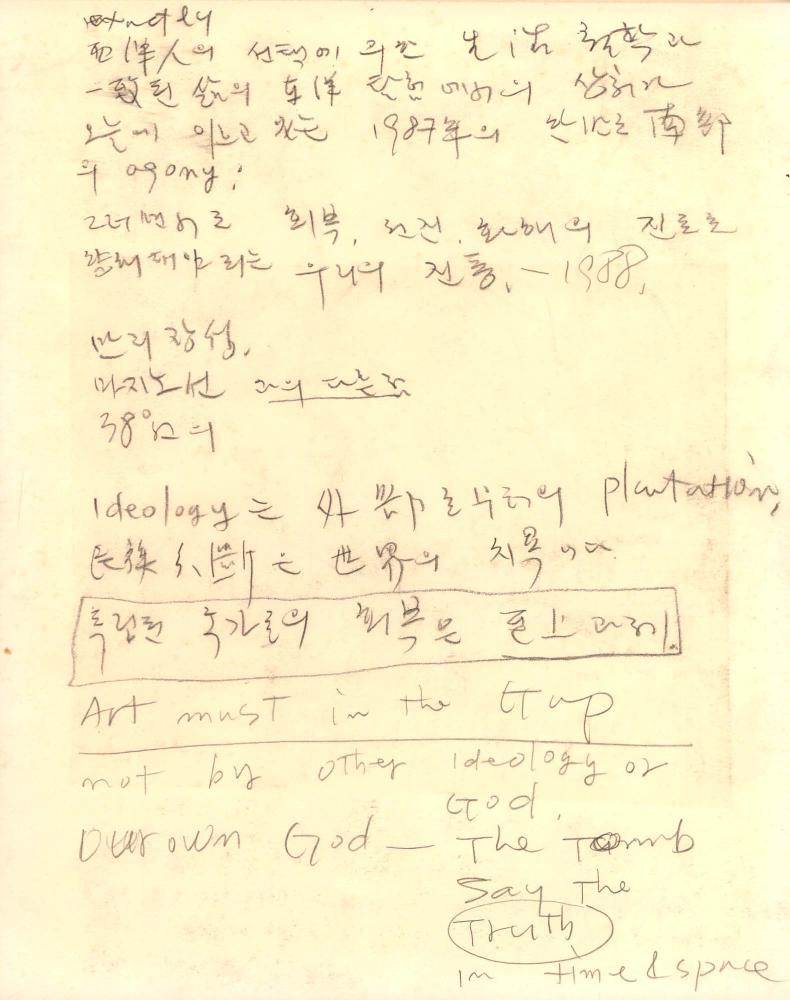 exactly
西洋人의 선택에 의한 生活 철학과
一致된 삶의 东洋 탐험에서의 상처가
오늘에 이르고 있는 1987年의 한반도 南部
의 agony;
그러면서도 회복, 전진, 화해의 진로로
향해져야 되는 우리의 전통, - 1988,
만리장성,
마지노선 과의 다른점
38°선의
Ideology는 外部로부터의 plantation,
民族分斷은 世界의 치욕이다
독립된 국가로의 회복은 至上과제.
Art must in the Gap
not by other Ideology or
God,
Our own God — The Tomb
Say The
Truth
in time & space